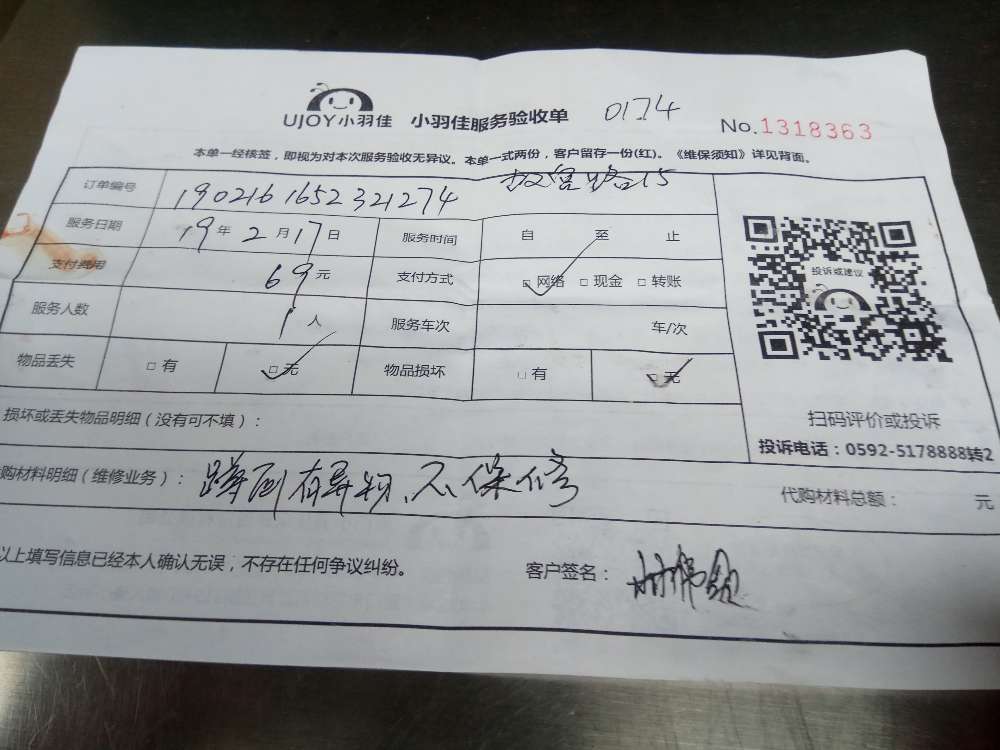 UJOY小羽佳 小羽佳服务验收单 0174 No.1318363
本单一经核签，即视为对本次服务验收无异议。本单一式两份，客户留存一份(红)。《维保须知》详见背面。
订单编号 1902161652321274
服务日期 19年2月17日 服务时间 自 至 止
支付费用 69元 支付方式 □网络 □现金 □转账
服务人数 1人 服务车次 车/次
物品丢失 □有 □无 物品损坏 □有 □无
投诉或建议
损坏或丢失物品明细（没有可不填）：
扫码评价或投诉
投诉电话：0592-5178888转2
购材料明细（维修业务）： 蹲厕有异物、不保修 代购材料总额： 元
以上填写信息已经本人确认无误，不存在任何争议纠纷。 客户签名：